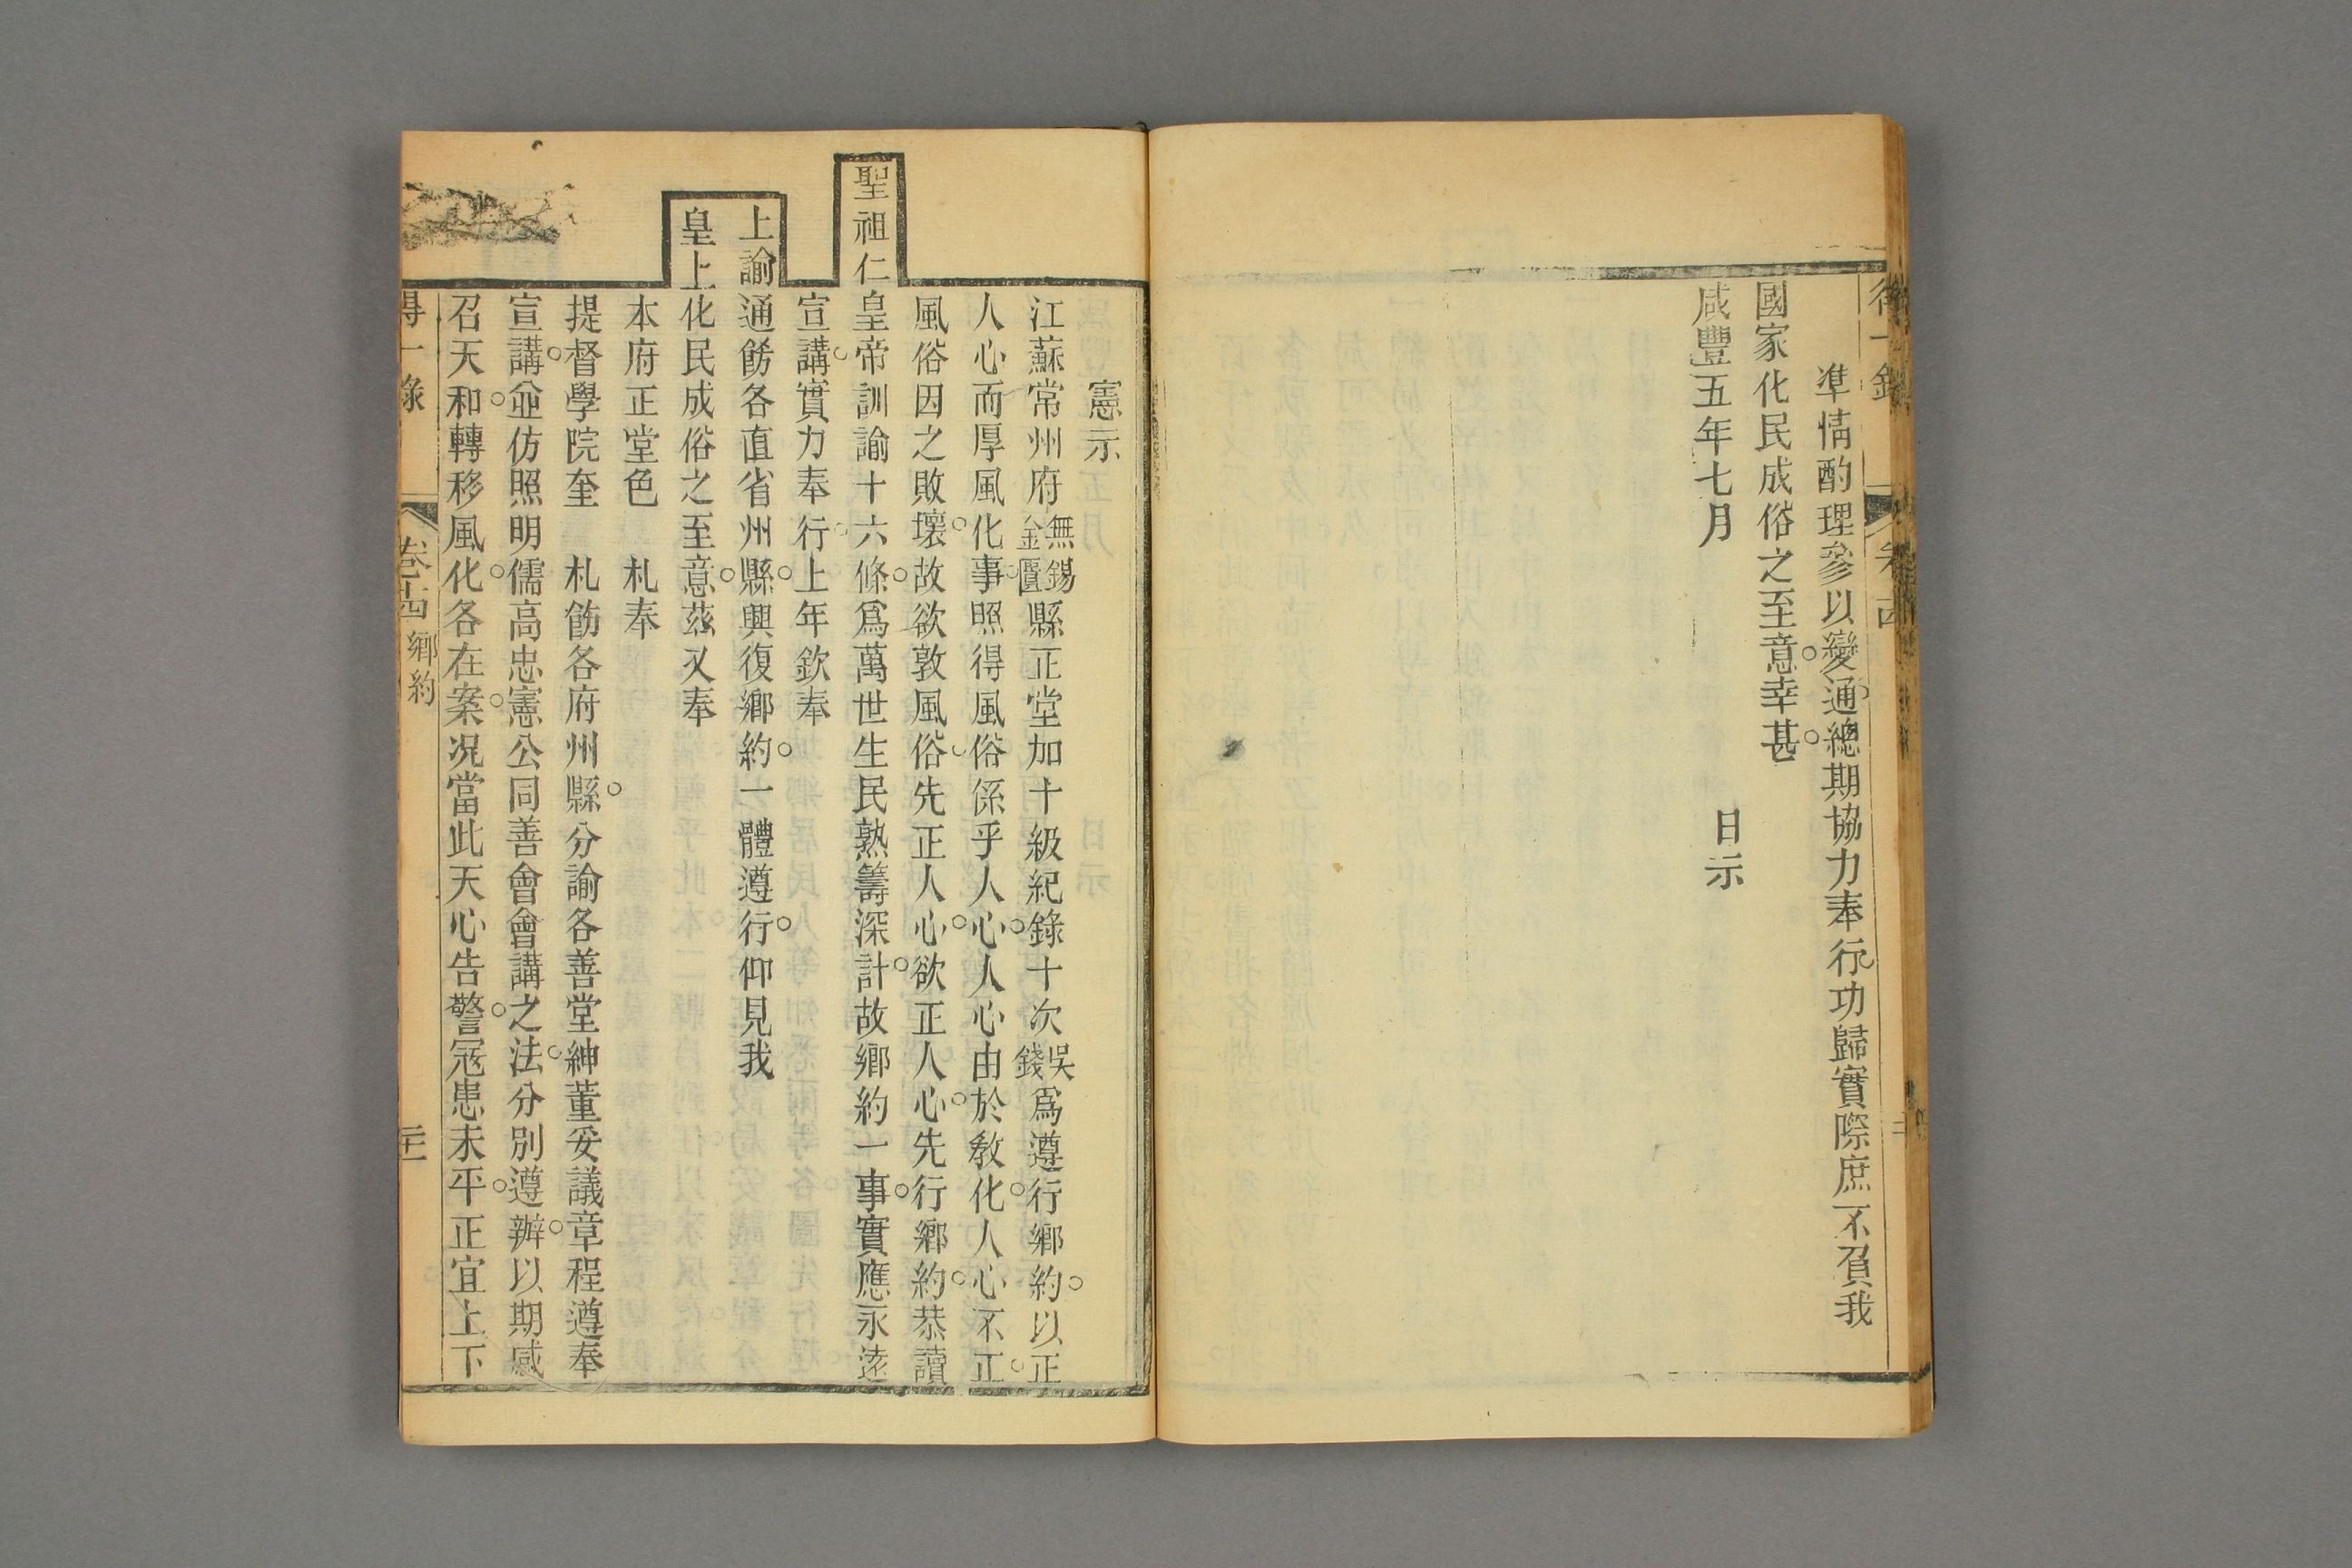 準情酌理參以變通總期協力奉行功歸實際庶不負我
國家化民成俗之至意幸甚
咸豐五年七月　日示
憲示
江蘇常州府無錫金匱縣正堂加十級紀錄十次吳錢爲遵行鄉約以正
人心而厚風化事照得風俗係乎人心人心由於教化人心不正
風俗因之敗壞故欲敦風俗先正人心欲正人心先行鄉約恭讀
聖祖仁皇帝訓諭十六條爲萬世生民熟籌深計故鄉約一事實應永遠
宣講實力奉行上年欽奉
上諭通飭各直省州縣興復鄉約一體遵行仰見我
皇上化民成俗之至意茲又奉
本府正堂色　札奉
提督學院奎　札飭各府州縣分諭各善堂紳董妥議章程遵奉
宣講並仿照明儒高忠憲公同善會會講之法分別遵辦以期感
召天和轉移風化各在案況當此天心告警寇患未平正宜上下
得一錄　卷十四　鄉約